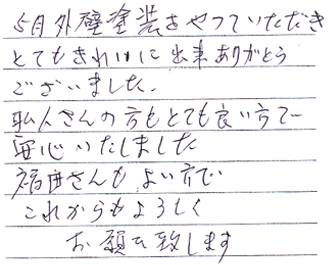 5月外壁塗装をやっていただき
とてもきれいに出来ありがとう
ございました。
職人さんの方もとても良い方で
安心いたしました
福田さんも よい方で
これからもよろしく
お願い致します